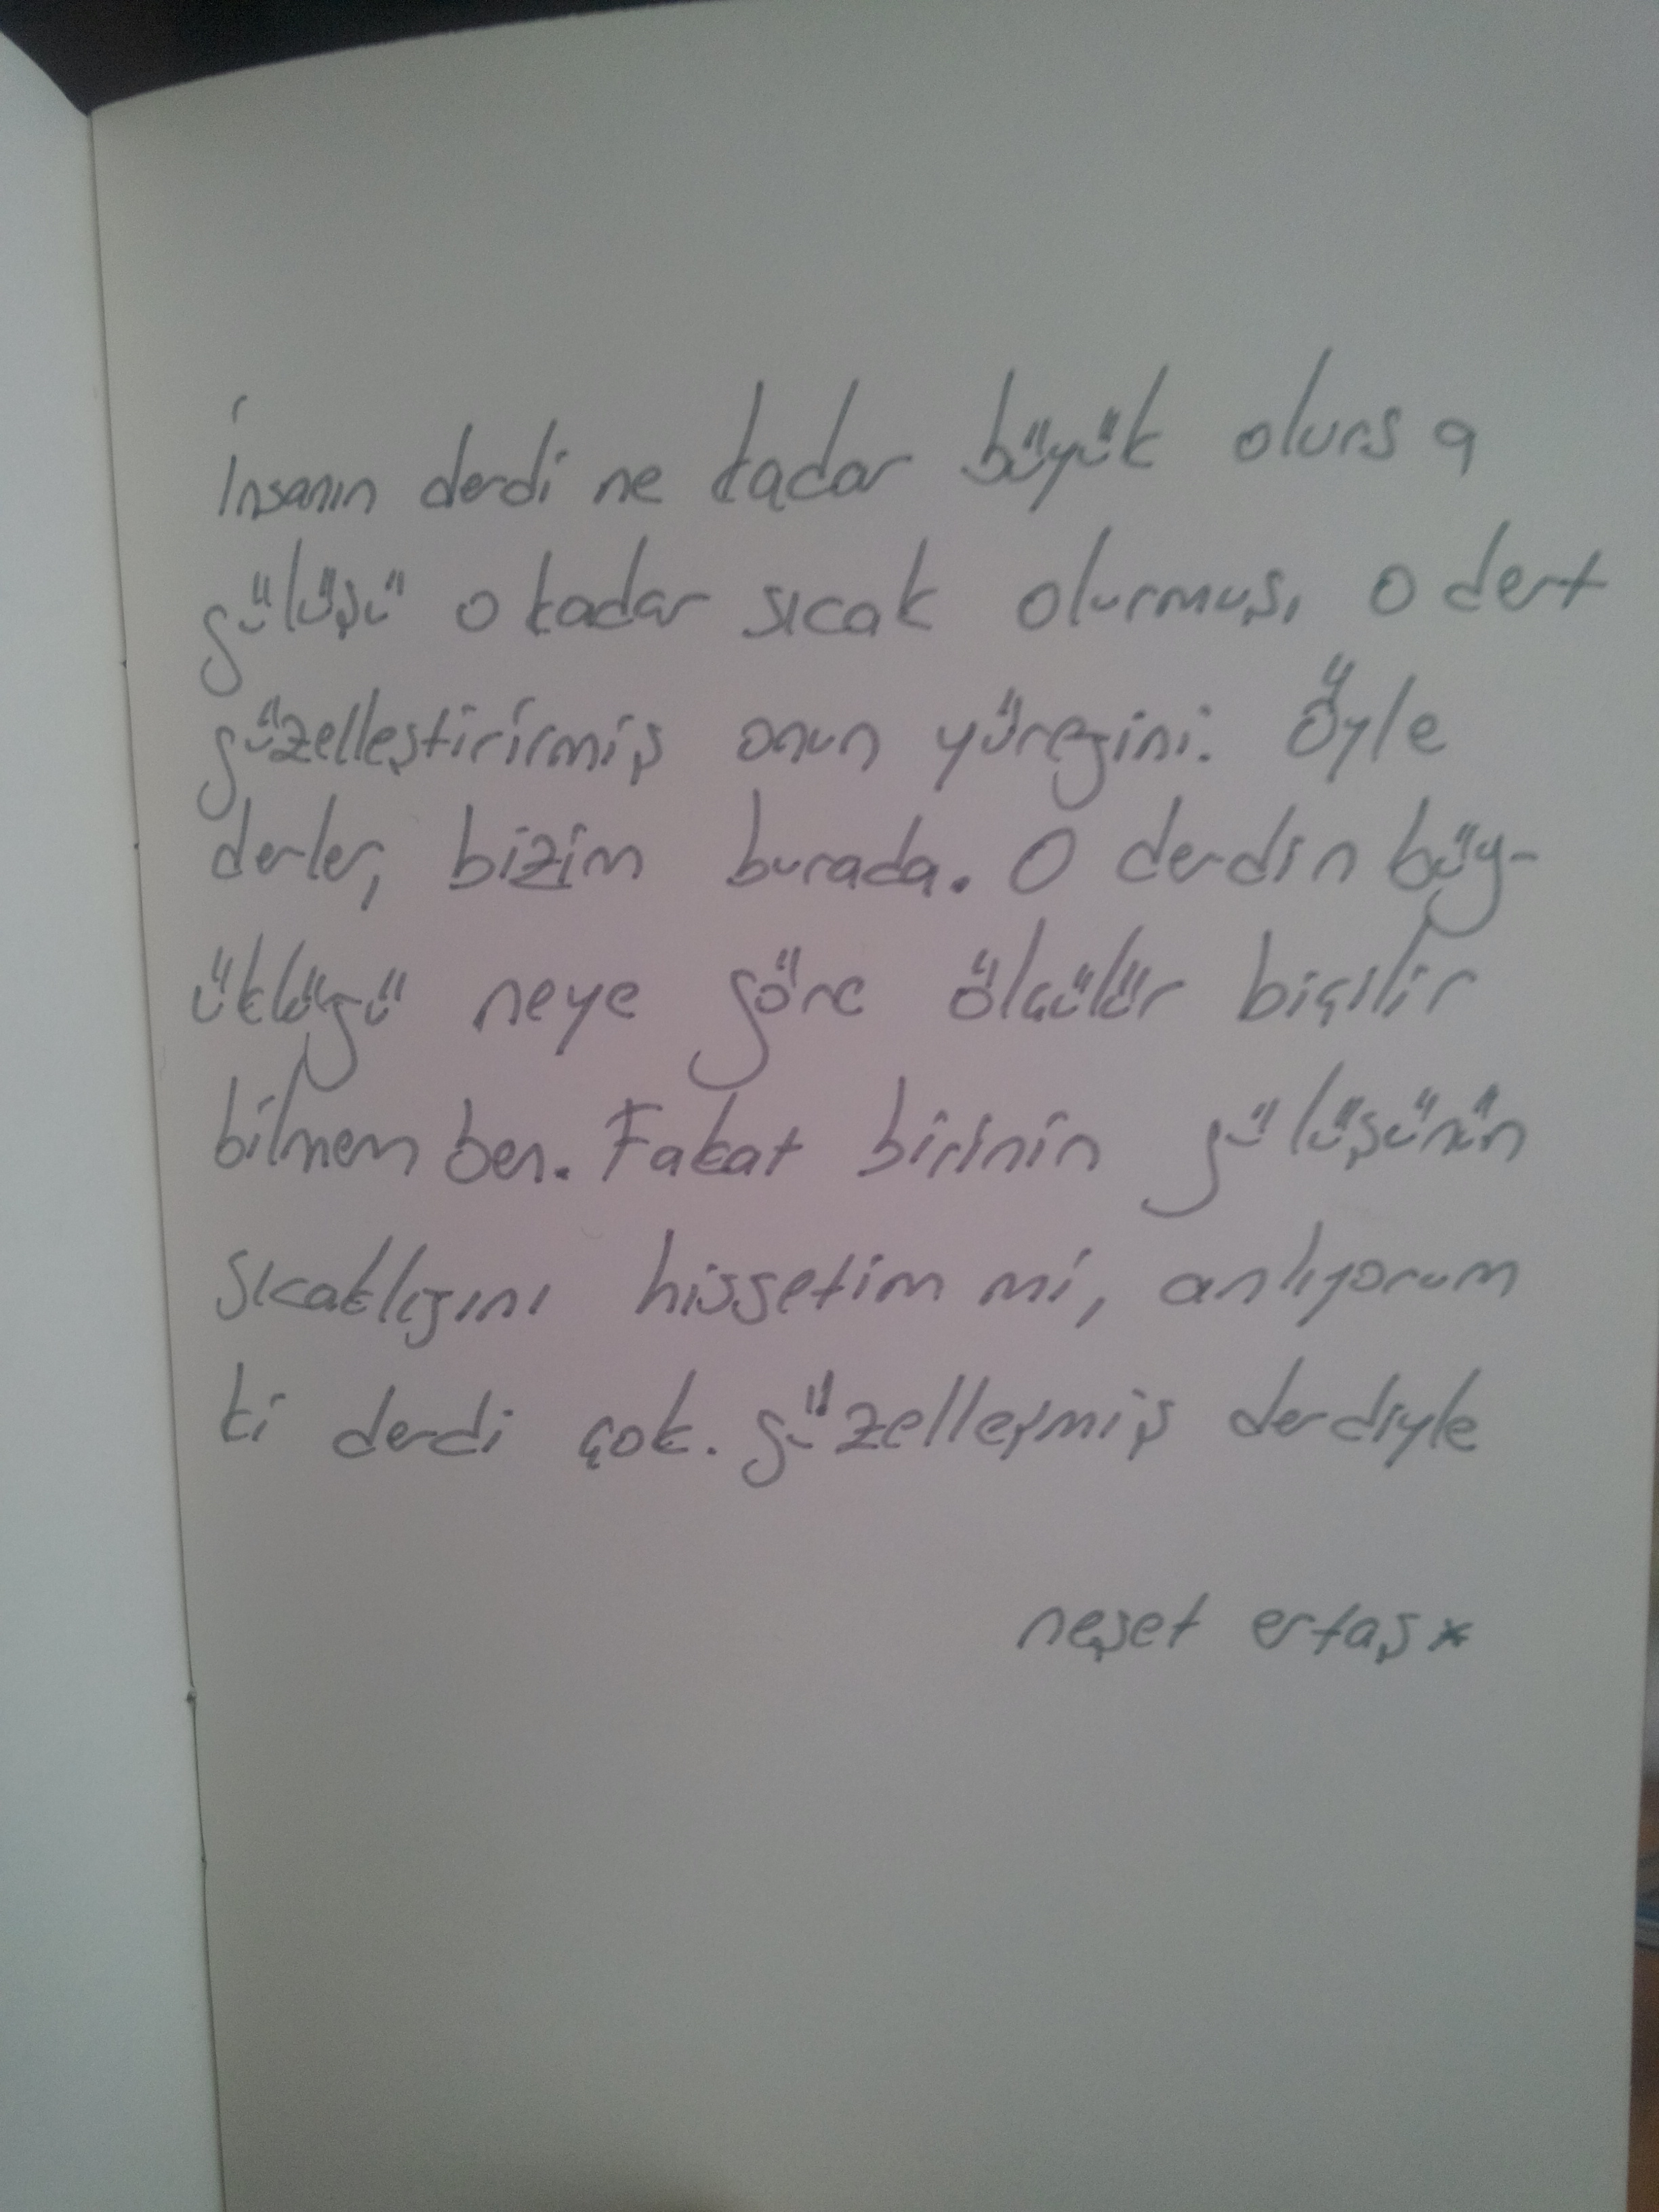 İnsanın derdi ne kadar büyük olursa
gülüşü o kadar sıcak olurmuş, o dert
güzelleştirirmiş onun yüreğini. Öyle
derler, bizim burada. O derdin büy-
üklüğü neye göre ölçülür biçilir
bilmem ben. Fakat birinin gülüşünün
sıcaklığını hissetim mi, anlıyorum
ki derdi çok. güzelleşmiş derdiyle
neşet ertaş*